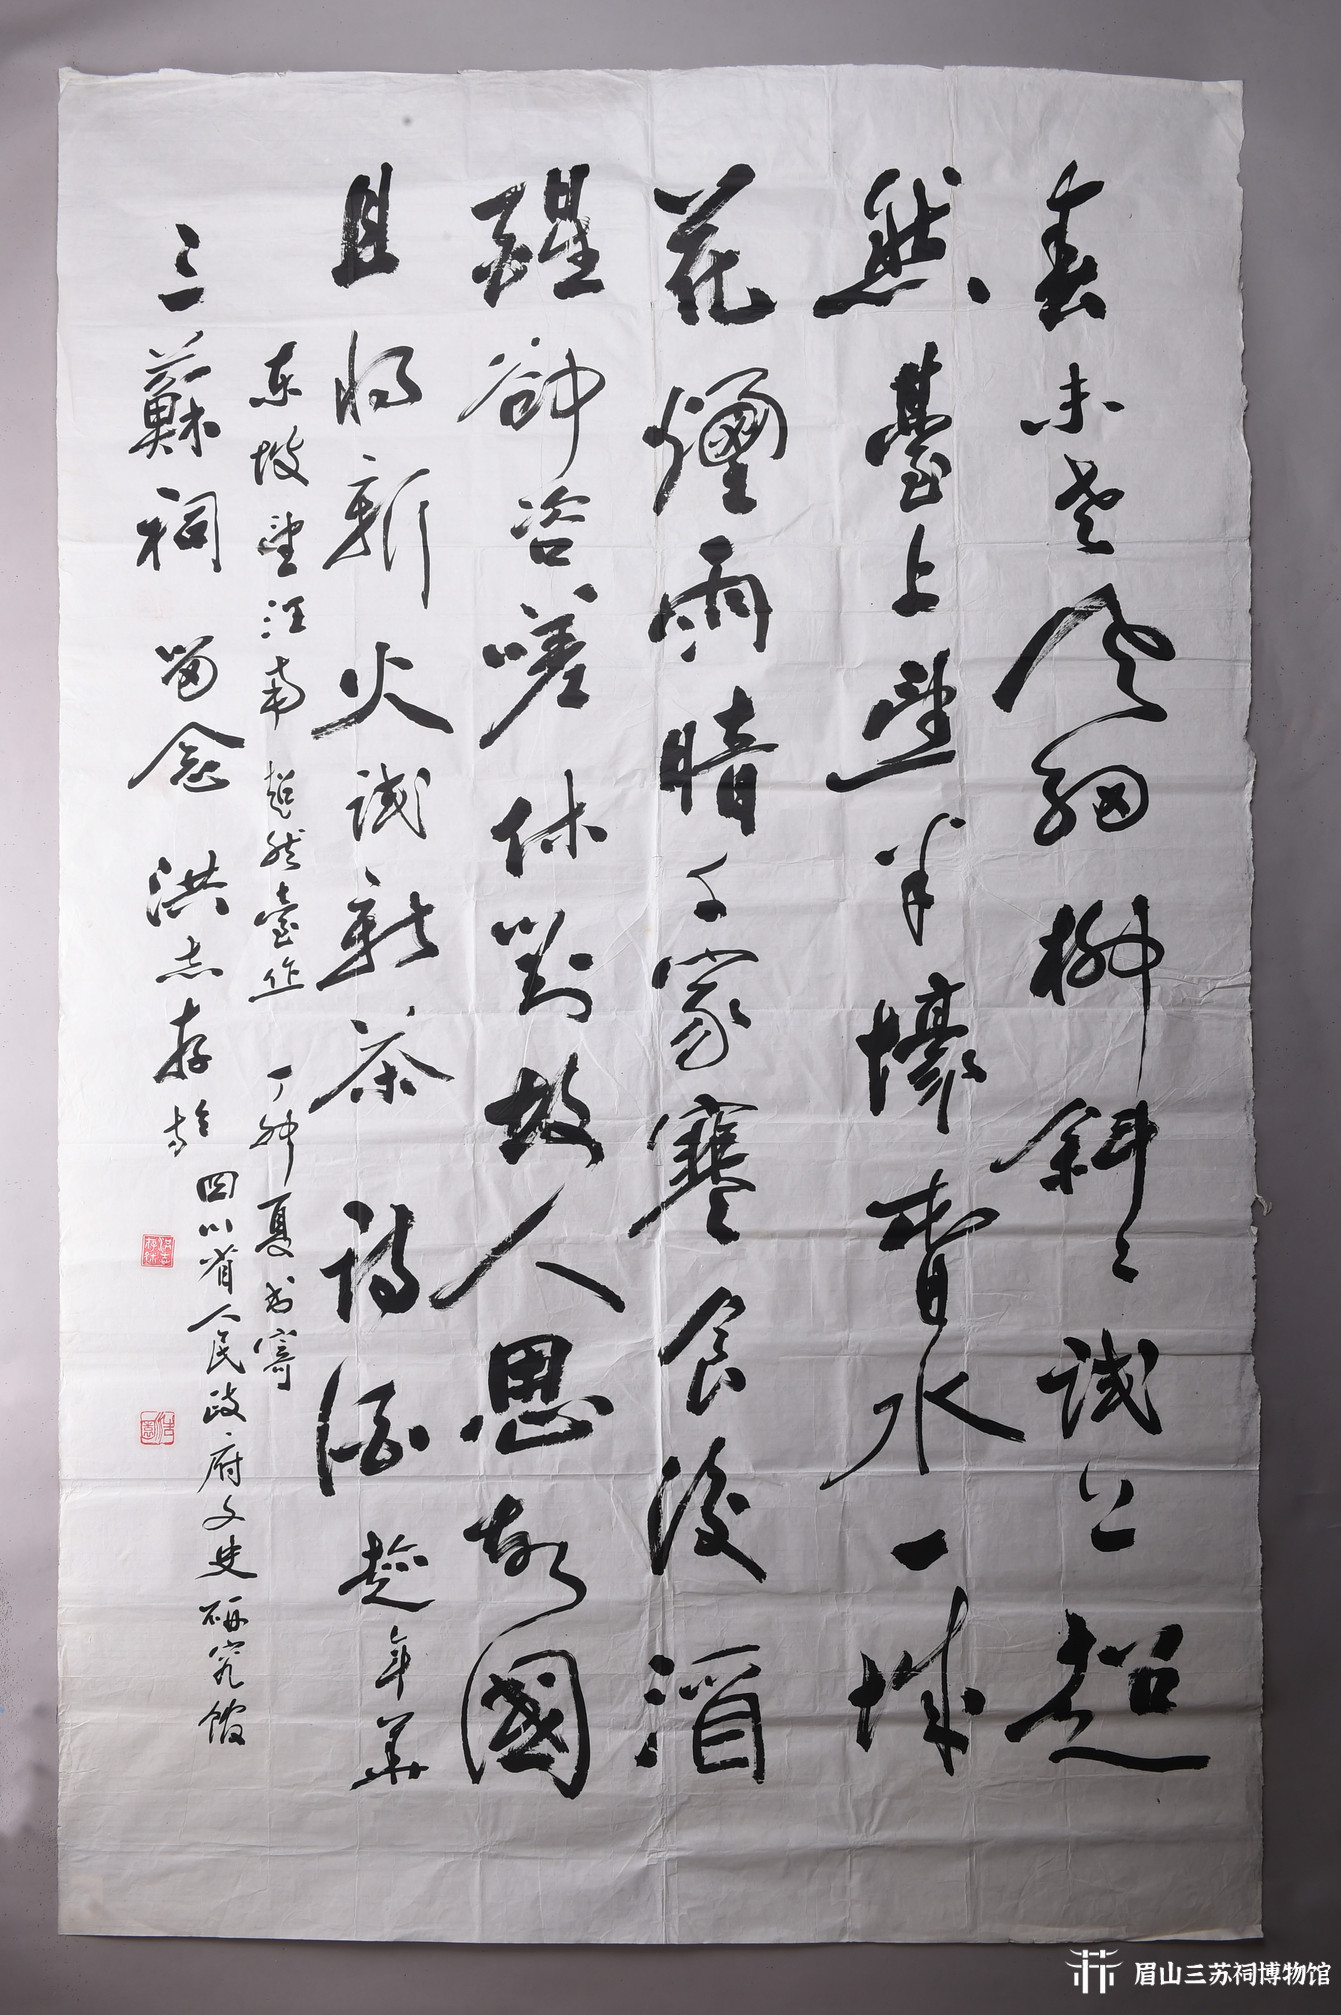 春未老風細柳斜々試上超
然臺上望半壕春水一城
花煙雨暗千家寒食後酒
醒卻咨嗟休對故人思故國
且将新火試新茶詩酒趁年華
东坡望江南 超然臺作 丁卯夏书寄
三蘇祠 留念 洪志存
四川省人民政府文史研究館
眉山三苏祠博物馆